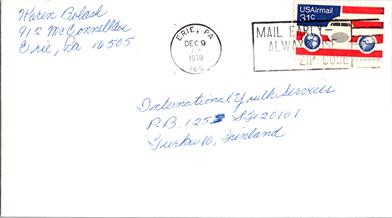 Karen Bolash
918 McConnell Ave
Erie, Pa 16505
ERIE, PA
DEC 9
1978
165
MAIL EARLY
ALWAYS USE
ZIP CODE
USAirmail
31c
International Youth Services
P.B. 125 SF-20101
Turku 10, Finland